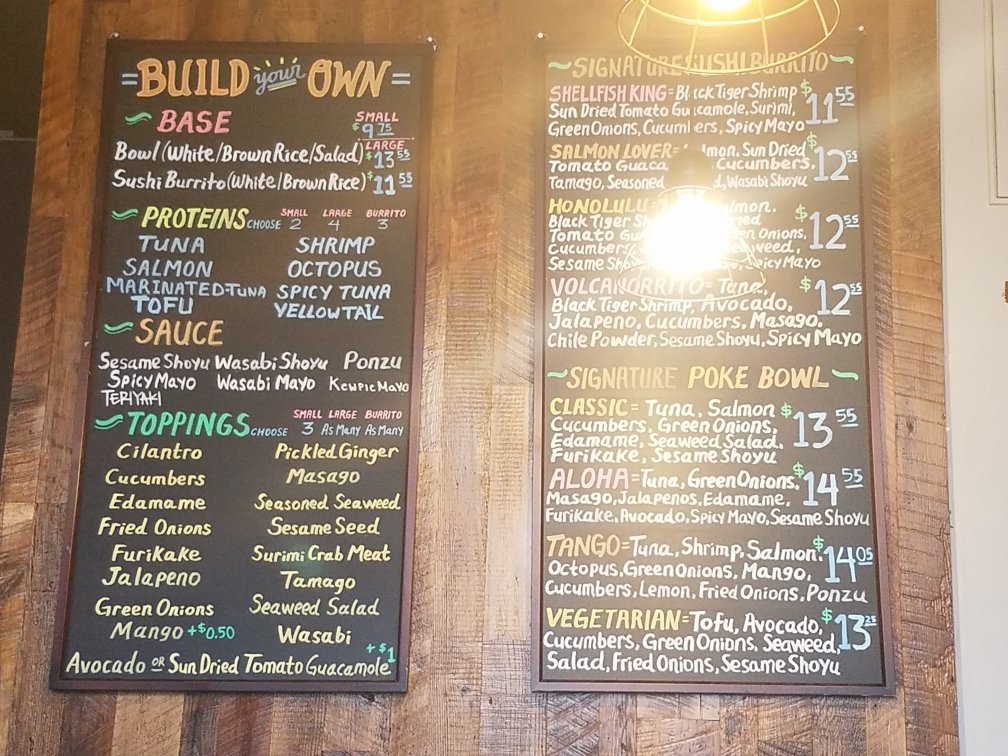 =BUILD your OWN=
BASE SMALL $9.75
LARGE
Bowl (White/Brown Rice/Salad) $13.55
Sushi Burrito (White/Brown Rice) $11.55
PROTEINS CHOOSE SMALL 2 LARGE 4 BURRITO 3
TUNA SHRIMP
SALMON OCTOPUS
MARINATED TUNA SPICY TUNA
TOFU YELLOWTAIL
SAUCE
Sesame Shoyu Wasabi Shoyu Ponzu
Spicy Mayo Wasabi Mayo Kewpie Mayo
TERIYAKI
TOPPINGS CHOOSE SMALL 3 LARGE As Many BURRITO As Many
Cilantro Pickled Ginger
Cucumbers Masago
Edamame Seasoned Seaweed
Fried Onions Sesame Seed
Furikake Surimi Crab Meat
Jalapeno Tamago
Green Onions Seaweed Salad
Mango +$0.50 Wasabi
Avocado OR Sun Dried Tomato Guacamole +$1
~SIGNATURE SUSHI BURRITO~
SHELLFISH KING= Black Tiger Shrimp $11.55
Sun Dried Tomato Guacamole, Surimi,
Green Onions, Cucumbers, Spicy Mayo
SALMON LOVER= Salmon, Sun Dried $12.55
Tomato Guaca Cucumbers,
Tamago, Seasoned Wasabi Shoyu
HONOLULU= Salmon, $12.55
Black Tiger
Tomato Green Onions,
Cucumbers, Seaweed,
Sesame Spicy Mayo
VOLCANORRITO= Tuna, $12.55
Black Tiger Shrimp, Avocado,
Jalapeno, Cucumbers, Masago,
Chile Powder, Sesame Shoyu, Spicy Mayo
~SIGNATURE POKE BOWL~
CLASSIC= Tuna, Salmon $13.55
Cucumbers, Green Onions,
Edamame, Seaweed Salad,
Furikake, Sesame Shoyu
ALOHA=Tuna, Green Onions, $14.55
Masago, Jalapenos, Edamame,
Furikake, Avocado, Spicy Mayo, Sesame Shoyu
TANGO=Tuna, Shrimp, Salmon, $14.05
Octopus, Green Onions, Mango,
Cucumbers, Lemon, Fried Onions, Ponzu
VEGETARIAN=Tofu, Avocado, $13.25
Cucumbers, Green Onions, Seaweed
Salad, Fried Onions, Sesame Shoyu